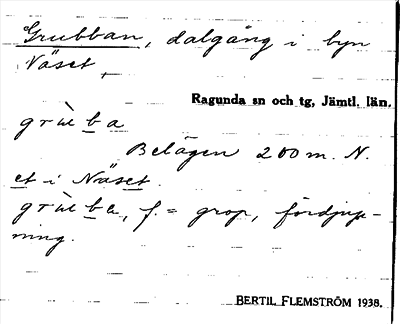 Grubban, dalgång i byn
Näset,
Ragunda sn och tg, Jämtl. län.
grùba
„Belägen 200 m. N.
et i Näset.
grùba, f. = grop, fördjup-
ning.
BERTIL FLEMSTRÖM 1938.